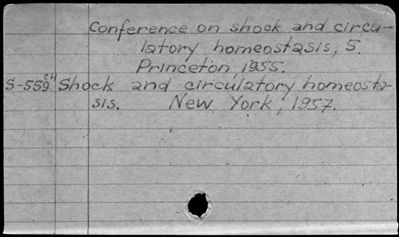 Conference on shock and circu-
latory homeostasis, 5.
Princeton, 1955.
S-559ch Shock and circulatory homeosta-
sis. New York, 1957.